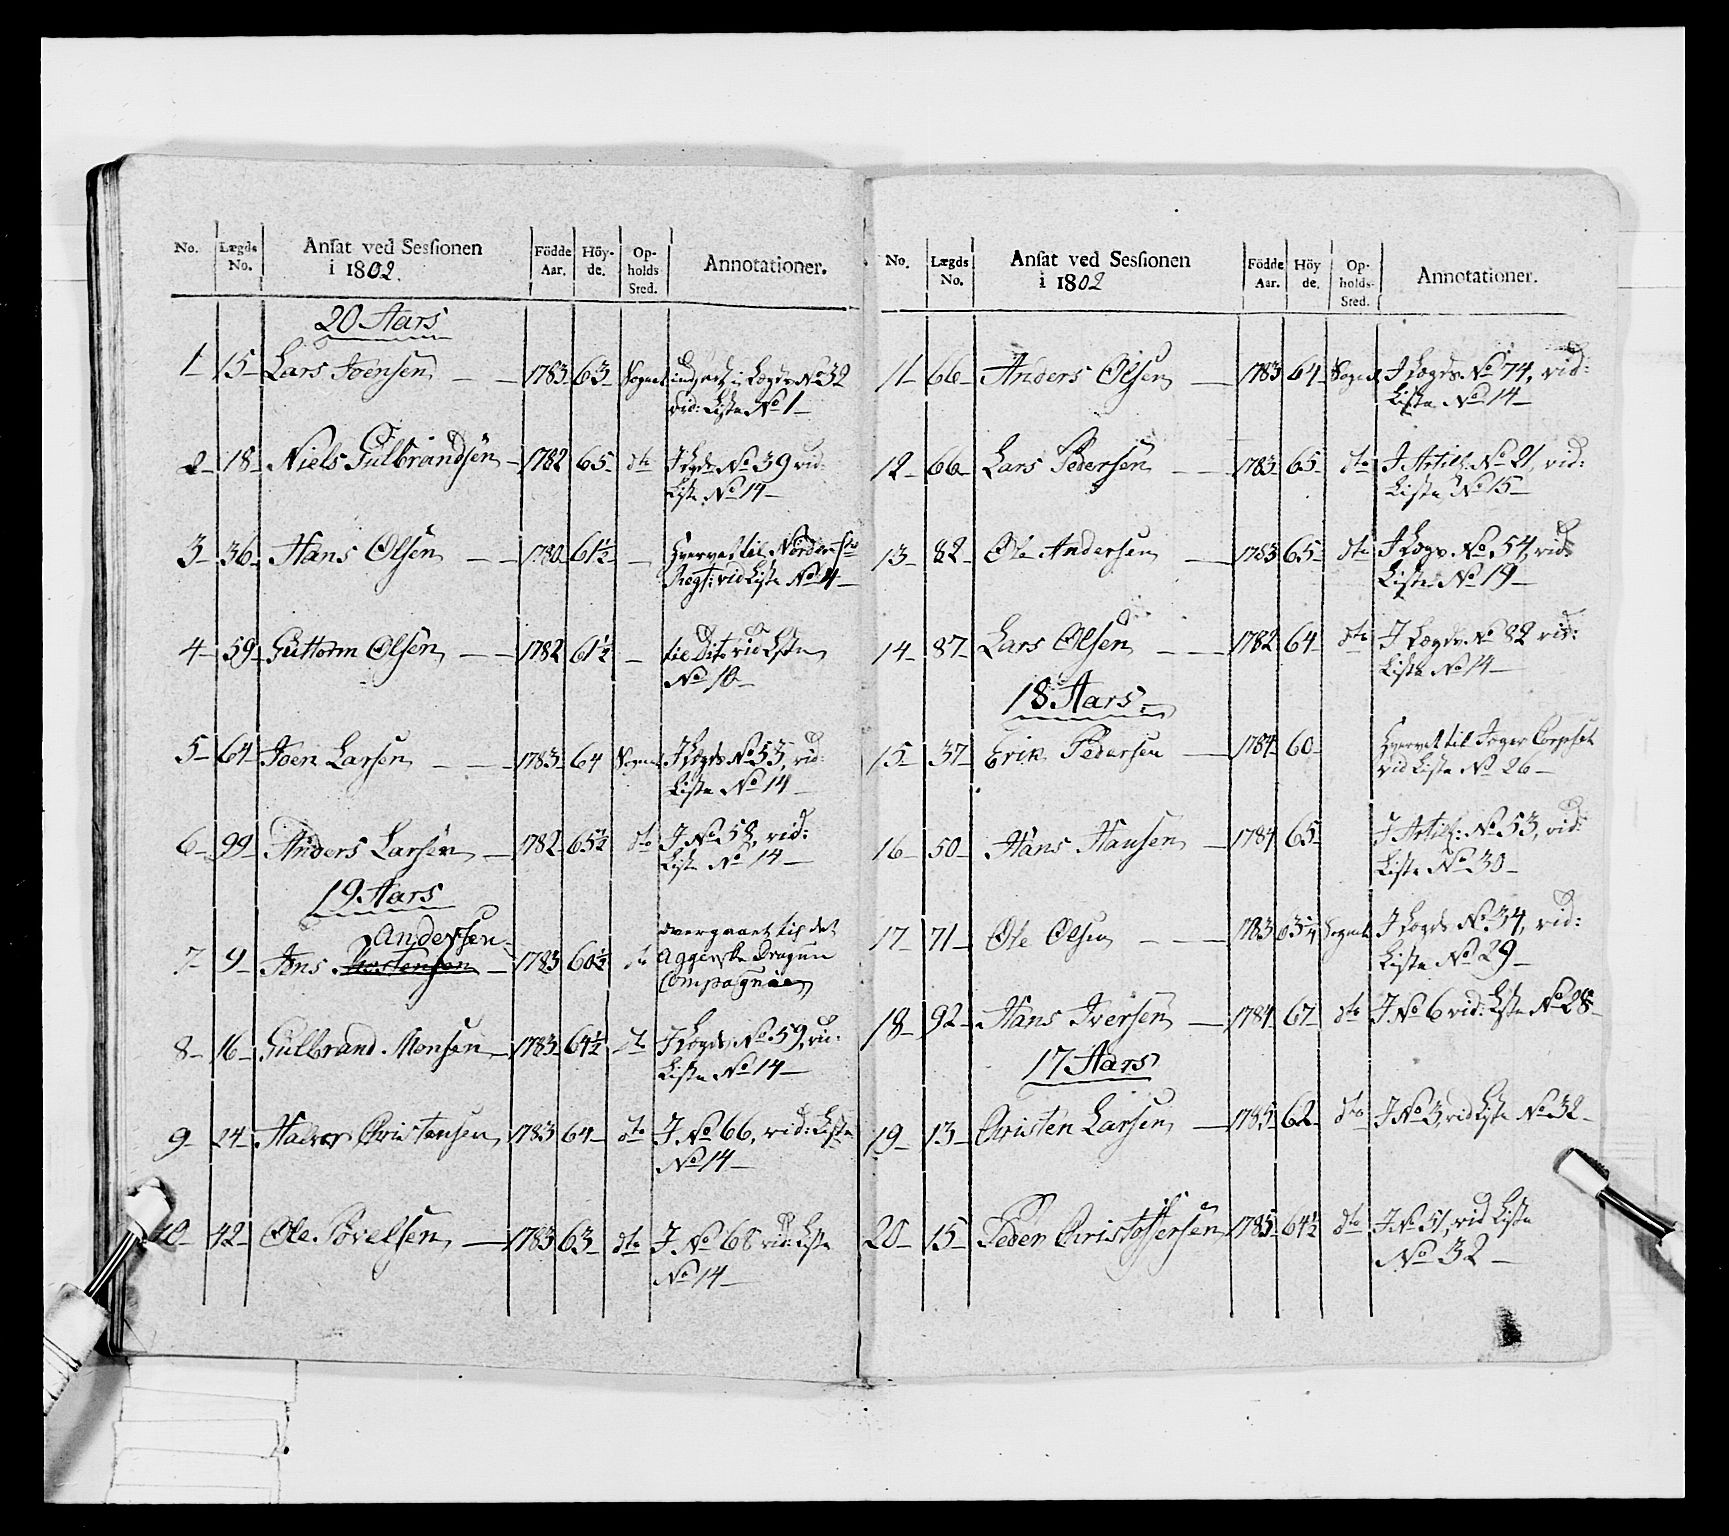 No. Lægds No. Ansat ved Sessionen i 1802. Födde Aar. Höy- de. Op- holds Sted. Annotationer.
20 Aars
1 - 15 - Lars Joensen - - 1783 63 - Sognet indsadt i Lægds No 32
vid: Liste No 1 -
2 - 18 - Niels Gulbrandsen - 1782 65 - dto I Lægds No 39 vid:
Liste No 14 -
3 - 36 - Hans Olsen - - 1780 61½ - - Hvervet til Nordenf:
Regt: vid Liste No 4 -
4 - 59 - Guttorm Olsen - - 1782 61½ - til Dito vid Liste
No 10 -
5 - 64 - Joen Larsen - - 1783 64 Sognet I Lægds No 53, vid:
Liste No 14 -
6 - 99 - Anders Larsen - 1782 65½ dto I No 58, vid:
Liste No 14 -
19 Aars
Andersen
7 - 9 - Jens - 1783 60½ dto overgaaet til det
Aggerske Dragun
Compagnie
8 - 16 - Gulbrand Monsen - 1783 64½ dto I Lægds No 59, vid:
Liste No 14 -
9 - 24 - Halvor Christensen 1783 64 - dto I No 66, vid: Liste
No 14 -
10 - 42 - Ole Povelsen - 1783 63 - dto I No 68 vid: Liste
No 14 -
No. Lægds No. Ansat ved Sessionen i 1802 Födde Aar. Höy de. Op- holds- Sted. Annotationer.
11 - 66 - Anders Olsen - 1783 64 - Sognet I Lægds No 74, vid:
Liste No 14 -
12 - 66 - Lars Pedersen - - 1783 65 - dto I Artill: No 21, vid:
Liste No 15 -
13 - 82 - Ole Andersen - - 1783 65 - dto I Lægds No 54, vid:
Liste No 19 -
14 - 87 - Lars Olsen - - 1782 64 - dto I Lægds No 82 vid:
Liste No 14 -
18 Aars
15 - 37 - Erik Pedersen - 1784 60 - Hvervet til Jæger Corpset
vid Liste No 26 -
16 - 50 - Hans Hansen - 1784 65 - I Artill: No 53, vid:
Liste No 30 -
17 - 71 - Ole Olsen - - 1783 63¼ Sognet I Lægds No 34, vid:
Liste No 29 -
18 - 92 - Hans Iversen - 1784 67 - dto I No 6 vid: Liste No 28 -
17 Aars
19 - 13 - Christen Larsen - 1785 62 - dto I No 3, vid Liste No 32 -
20 - 15 - Peder Christophersen 1785 64½ dto I No 51, vid Liste
No 32 -